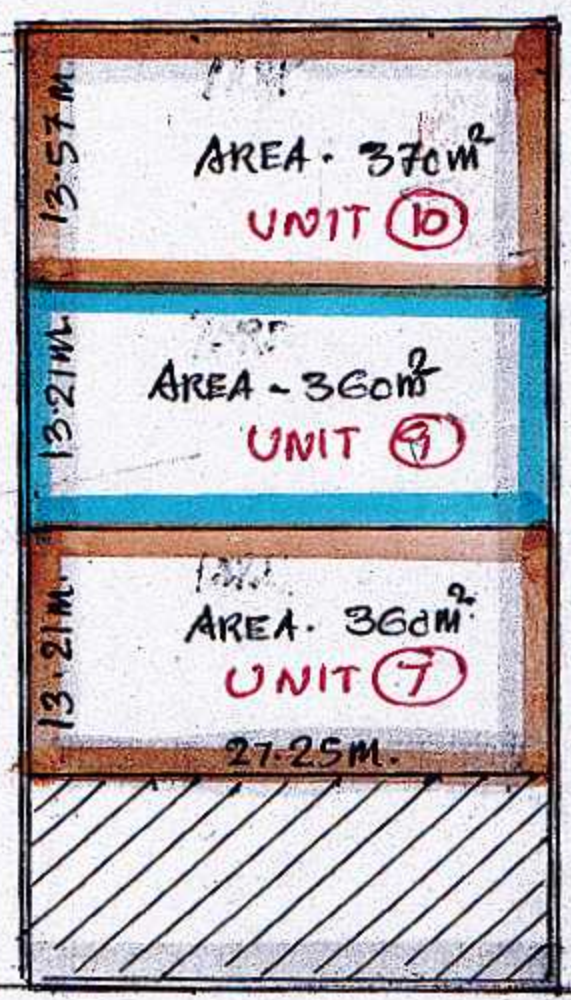 13.57M.
AREA. 370m²
UNIT 10
13.21M.
AREA - 360m²
UNIT 9
13.21M.
AREA. 360m²
UNIT 7
27.25M.